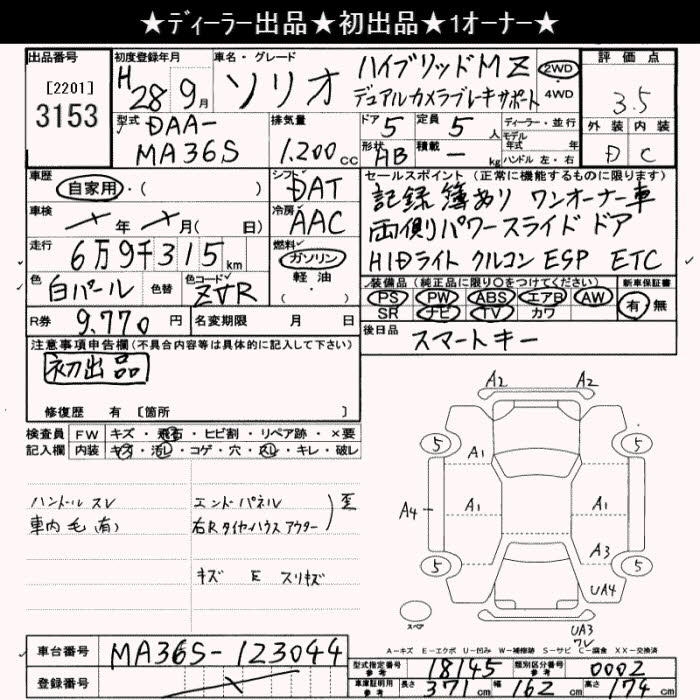 ★ディーラー出品★初出品★1オーナー★
出品番号 初度登録年月 車名・グレード 評価点
[2201]
3153
H28年9月 ソリオ ハイブリッドMZ 2WD
デュアルカメラブレーキサポート ・4WD
3.5
型式 DAA-
MA36S
排気量 1.200cc
ドア 5 定員 5人 ディーラー・並行
モデル年式 年式
形状 HB 積載 ー kg ハンドル 左・右
外装 内装
D C
車歴 自家用・( )
シフト DAT
セールスポイント(正常に機能するものに限ります)
記録簿あり ワンオーナー車
両側パワースライドドア
HIDライト クルコン ESP ETC
車検 年 月( 日)
冷房 AAC
走行 6万9千315km
燃料 ガソリン
軽油
・( )
色 白パール 色替 色コード ZVR
装備品(純正品に限り○をつけてください) 新車保証書
PS PW ABS エアB AW 有・無
SR ナビ TV カワ
R券 9.770円 名変期限 月 日
後日品 スマートキー
注意事項申告欄(不具合内容等は具体的に記入して下さい)
初出品
修復歴 有 [箇所 ]
検査員 FW キズ・飛石・ヒビ割・リペア跡・×要
記入欄 内装 キズ・汚レ・コゲ・穴・スレ・キレ・破レ
ハンドル スレ エンドパネル
車内 毛(有) 右Rタイヤハウスアウター
歪
キズ E スリキズ
A2 A2
5 5
A1
A4 A1 A1
A3
5 5
UA4
スペア
UA3
ワレ
A-キズ E-エクボ U-凹み W-補修跡 S-サビ C-腐食 XX-交換済
車台番号 MA36S-123044
登録番号
型式指定番号 参考 18145 類別区分番号 参考 0002
車庫証明用 参考 長さ 371cm 幅 162cm 高さ 174cm